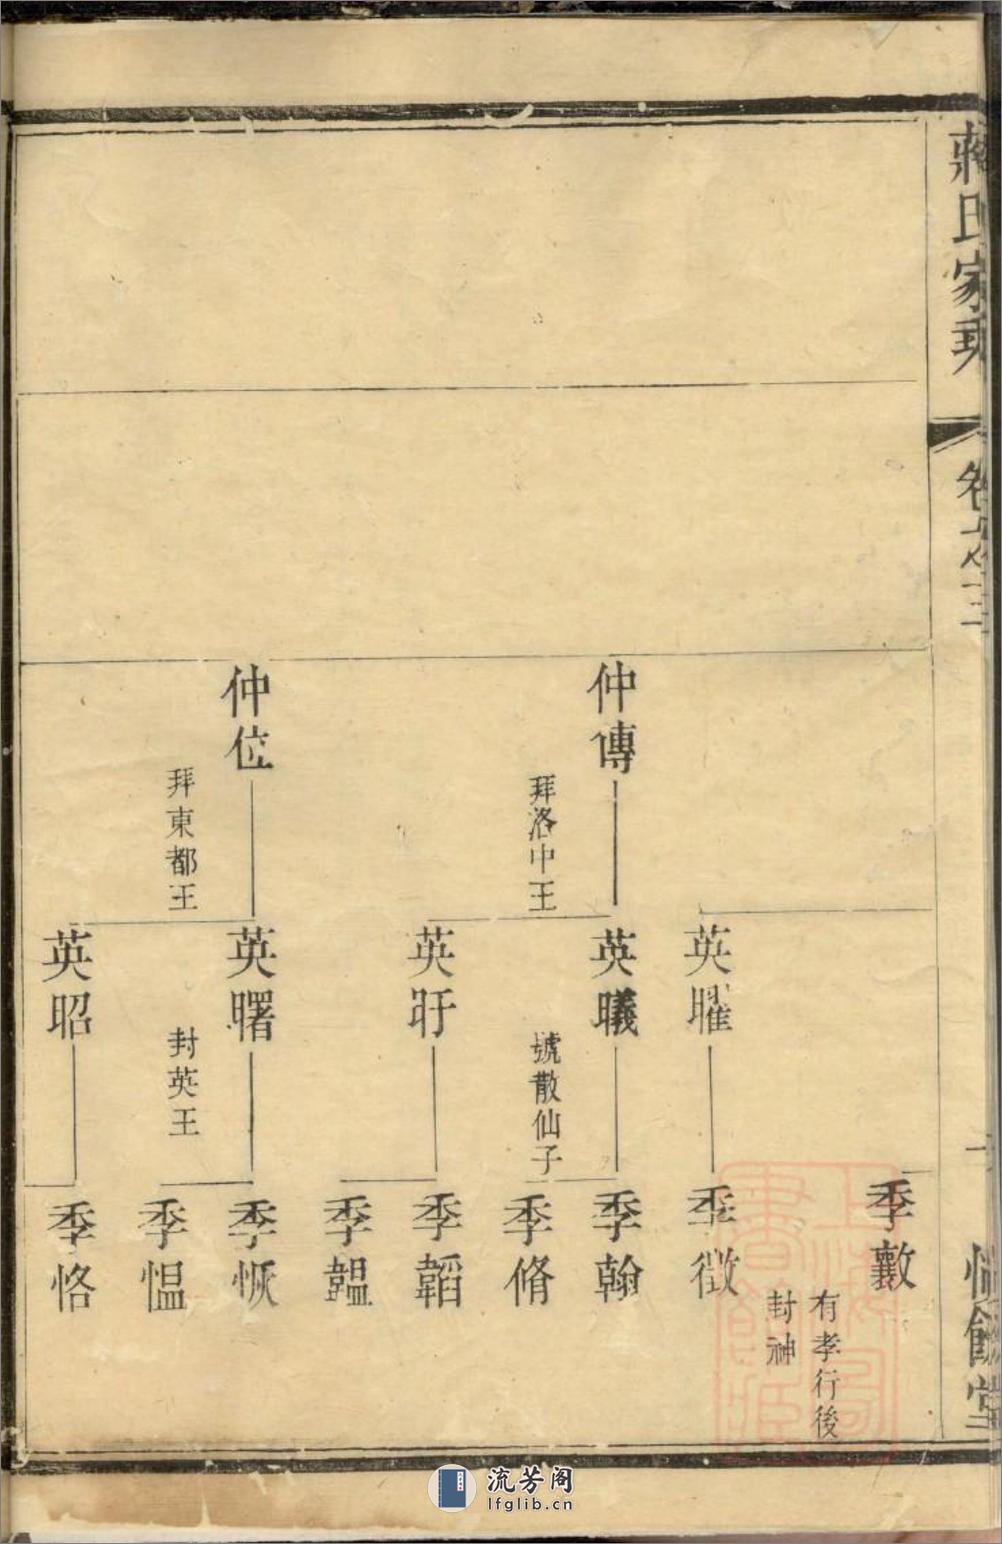 蔣氏家乘
卷之三
仲傳
拜洛中王
仲位
拜東都王
英曜
英曦
號散仙子
英盱
英曙
封英王
英昭
季
有孝行後
封神
季徵
季翰
季脩
季韜
季韞
季恢
季愠
季恪
流芳阁
lfglib.cn